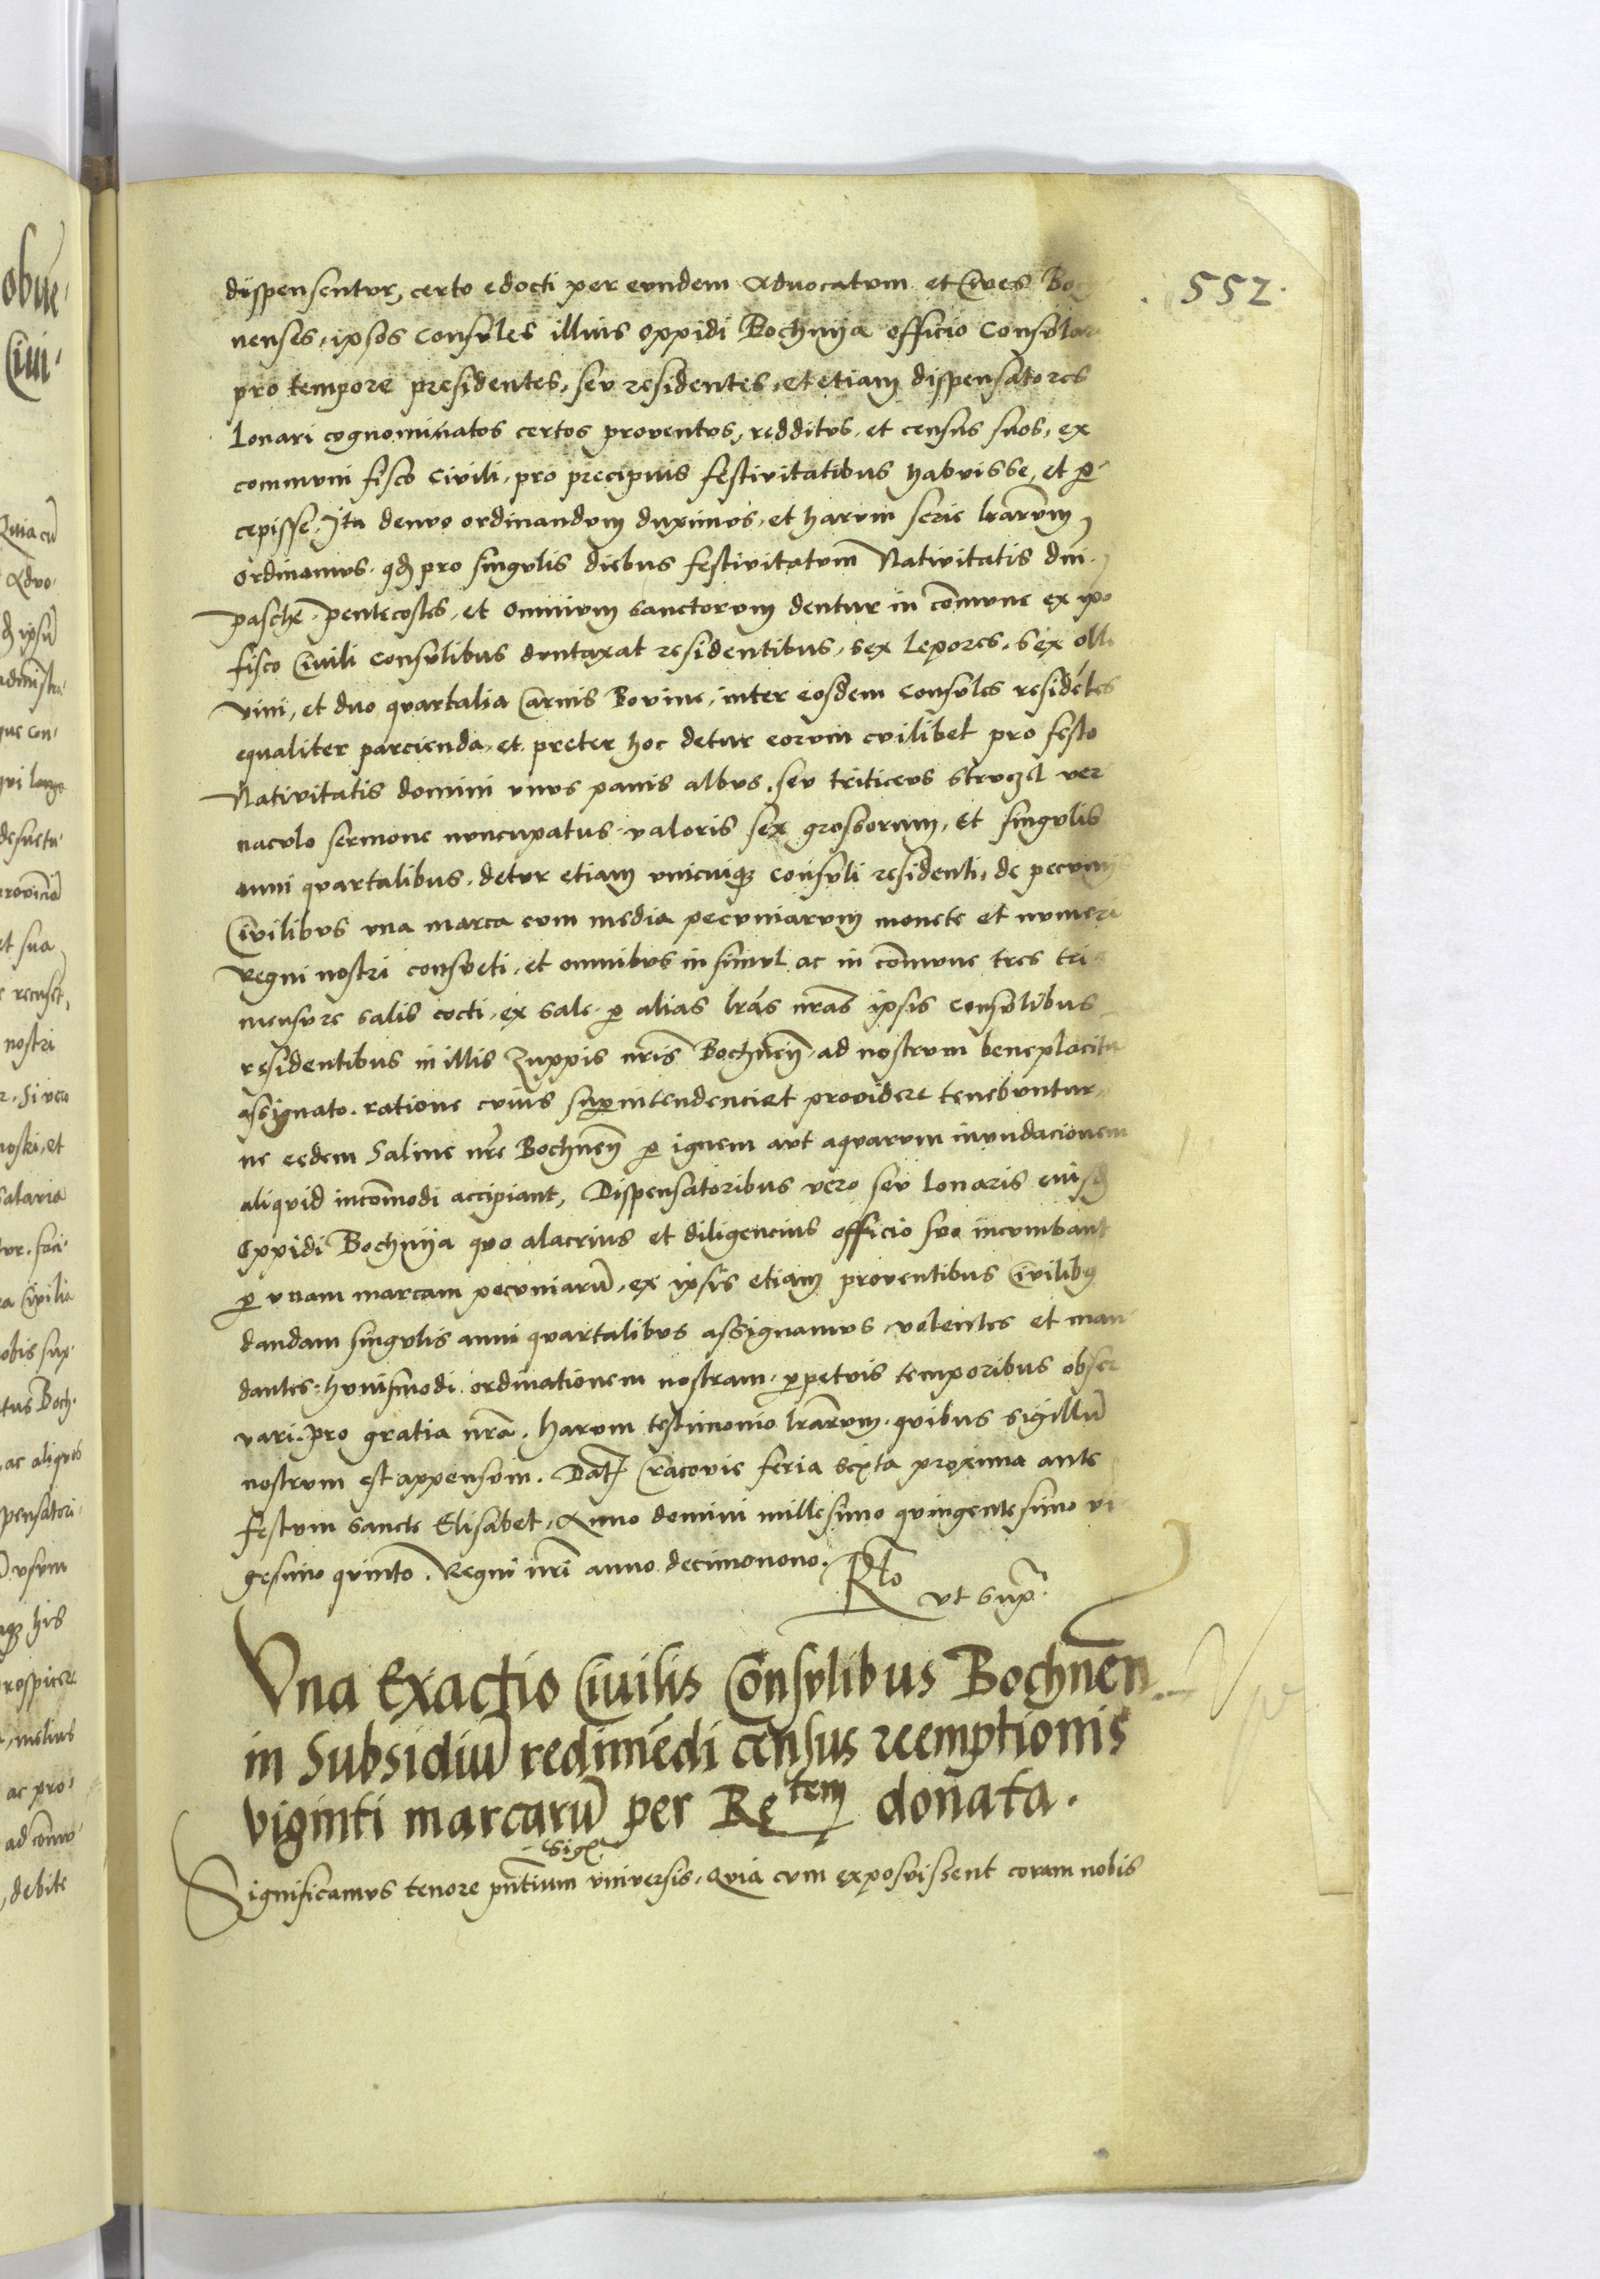 552.
dispensentur, certo edocti per eundem Advocatum et Cives Boch
nenses, ipsos Consules illius oppidi Bochnija officio Consular
pro tempore presidentes, seu residentes, et etiam dispensatores
Lonari cognominatos certos proventus, redditus, et census suos, ex
communi fisco Civili, pro precipuis festivitatibus habuisse, et p
cepisse, Ita denuo ordinandum duximus, et harum serie lrarum
ordinamus. qd pro singulis diebus festivitatum Nativitatis dni.
pasche, pentecostes, et omnium sanctorum dentur in comune ex ipo
fisco Civili Consulibus duntaxat residentibus, sex Lepores, sex oll
vini, et duo quartalia Carnis Bovine, inter eosdem Consules residetes
equaliter parcienda, et preter hoc detur eorum cuilibet pro festo
Nativitatis domini unus panis albus, seu triticeus struczl ver
naculo sermone nuncupatus valoris sex grossorum, Et singulis
anni quartalibus, detur etiam unicuiq consuli residenti, de pecunij
Civilibus una marca cum media pecuniarum monete et numeri
Regni nostri consueti, et omnibus in simul ac in comune tres tri
mensure salis cocti, ex sale p alias lras nras ipsis Consulibus
residentibus in illis Zuppis nris Bochnen ad nostrum beneplacitu
assignato. ratione cuius supintendenciet providere tenebuntur
ne eedem Saline nre Bochnen p ignem aut aquarum inundacionem
aliquid incomodi accipiant, Dispensatoribus vero seu lonaris eiusd
Oppidi Bochnija quo alacrius et diligencius officio suo incumbant
p unam marcam pecuniaru, ex ipsis etiam proventibus Civilibq
dandam singulis anni quartalibus assignamus, volentes et man
dantes huiusmodi ordinationem nostram, ppetuis temporibus obser
vari. pro gratia nra. Harum testimonio lrarum, quibus sigillu
nostrum est appensum. Dat Cracovie feria sexta proxima ante
Festum sancte Elisabet, Anno domini millesimo quingentesimo vi
gesimo quinto. Regni nri anno decimonono. Rlo
ut sup.
Una Exactio Civilis Consulibus Bochnen
in Subsidiu redimedi census reemptionis
viginti marcaru per Re tem donata.
Sig
Significamus tenore pntium universis, Quia cum exposuissent coram nobis